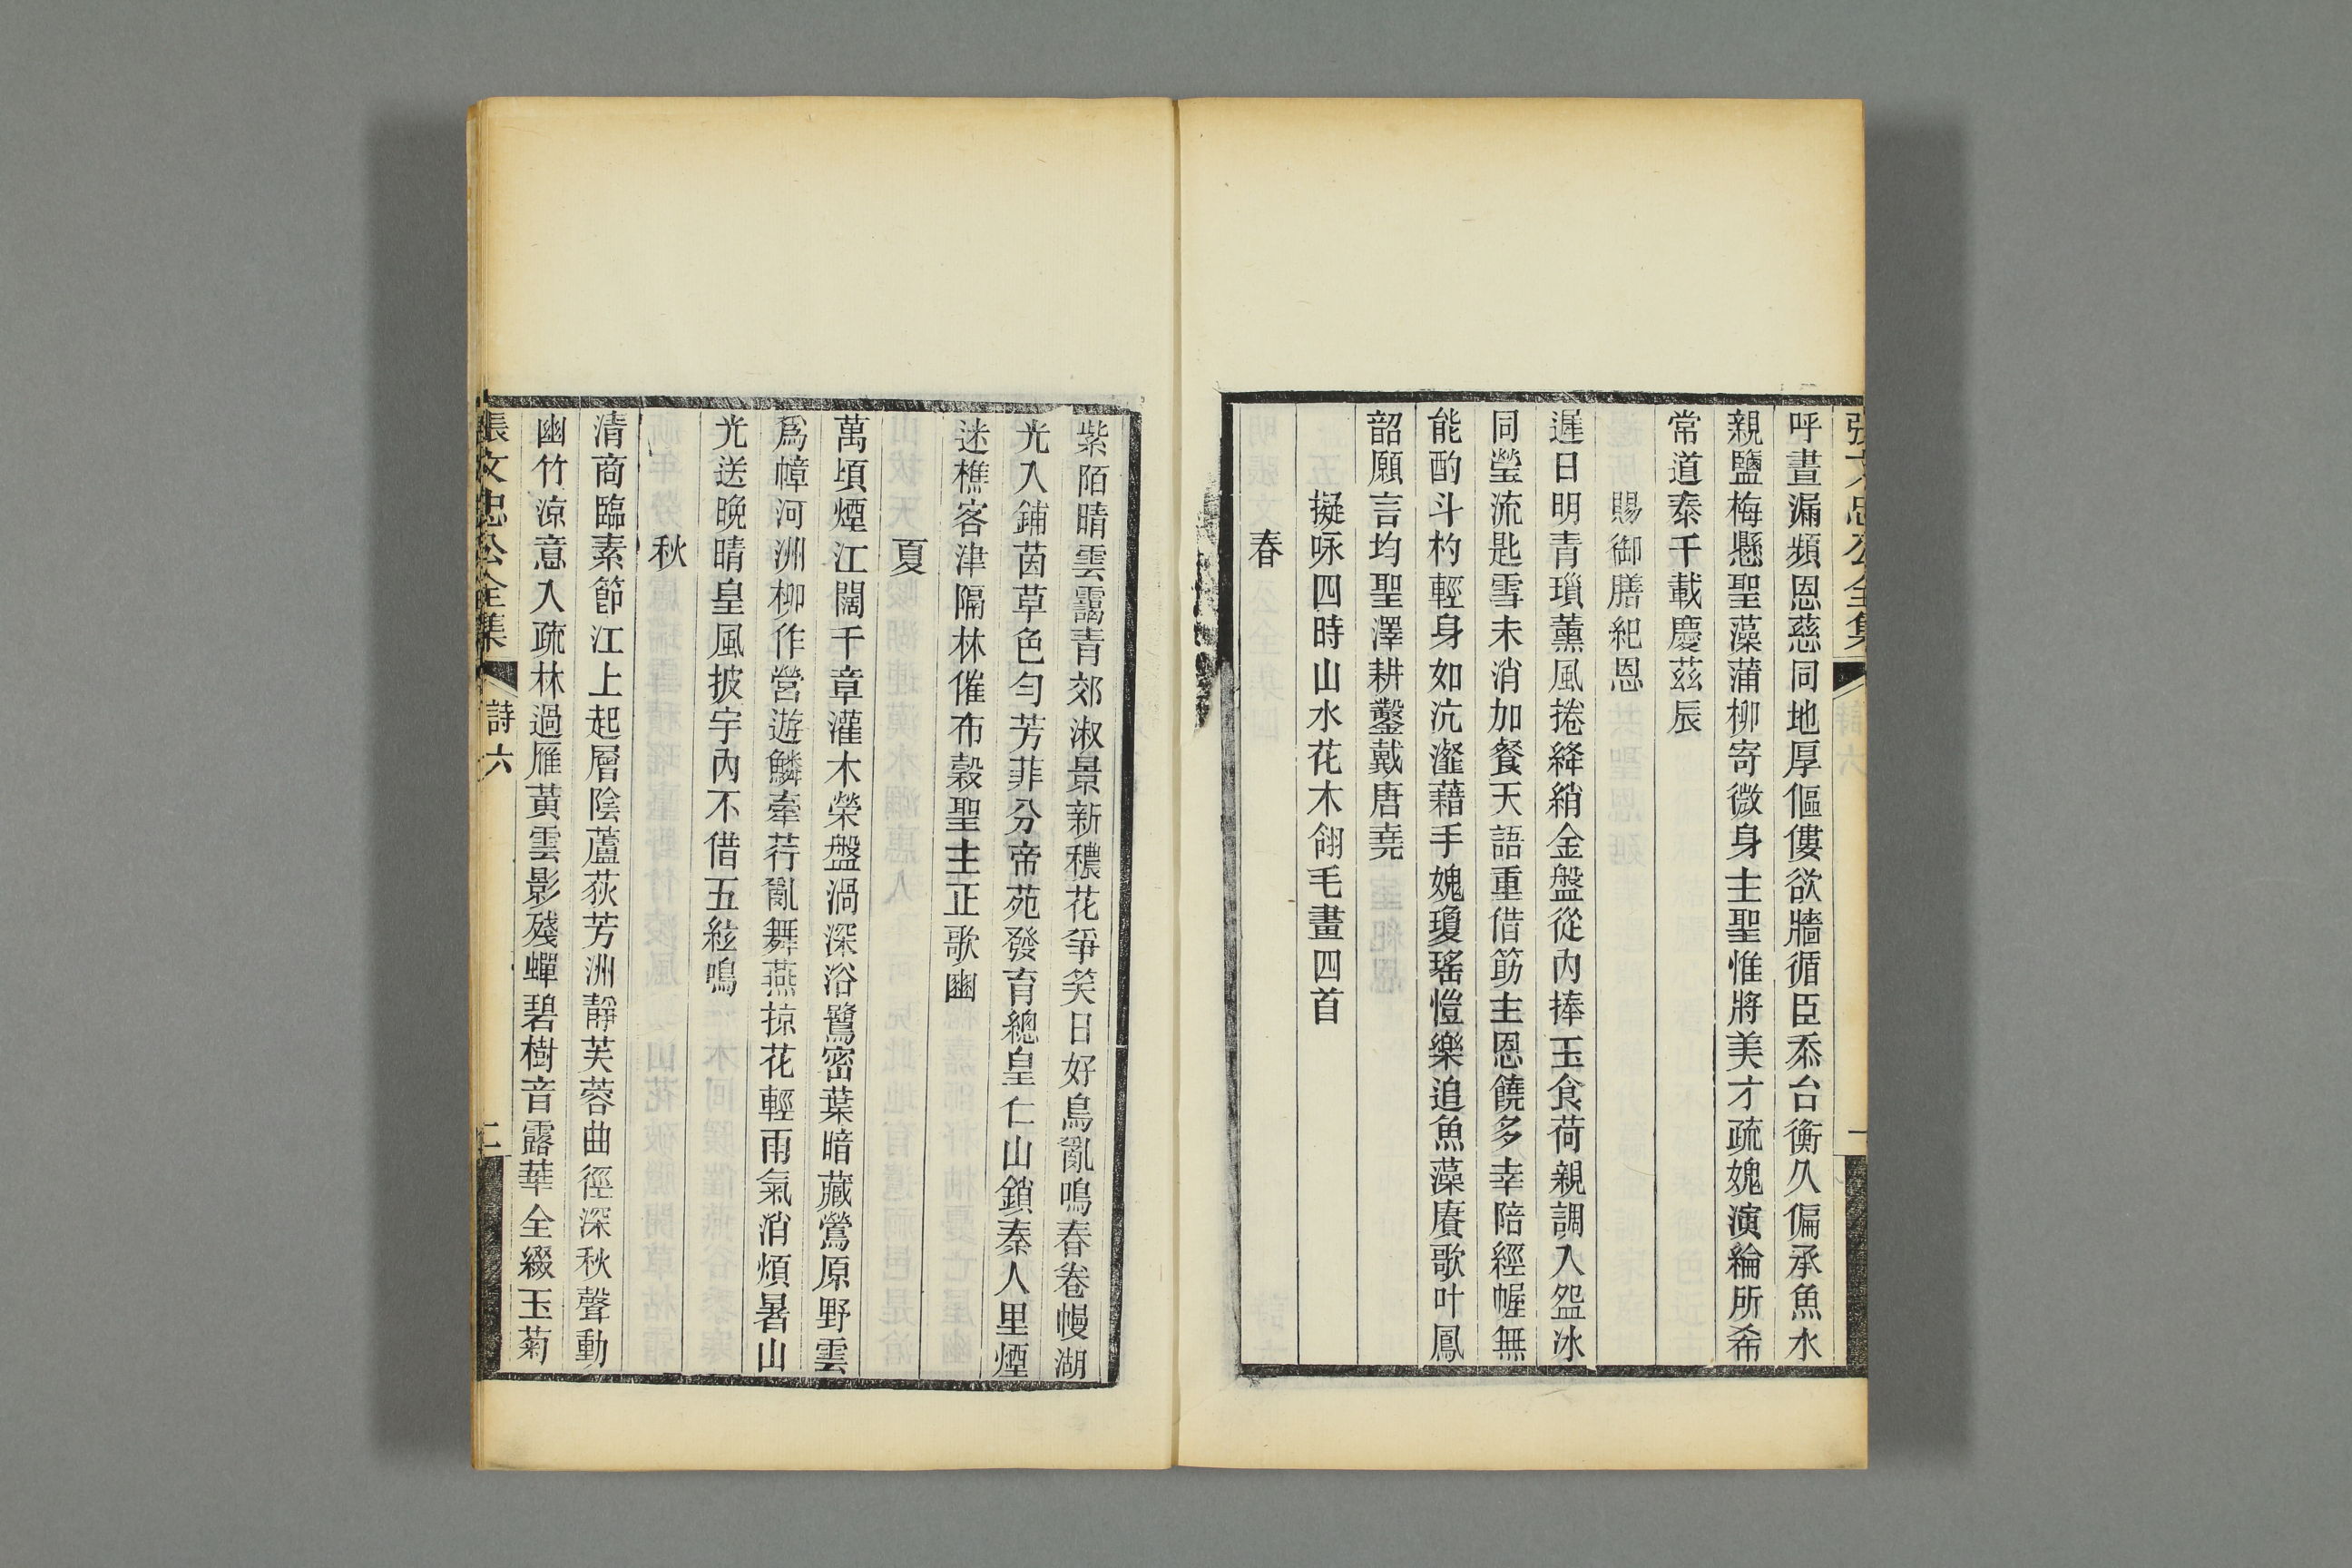 張文忠公全集
詩六
一
呼晝漏頻恩慈同地厚傴僂欲牆循臣忝台衡久偏承魚水
親鹽梅懸聖藻蒲柳寄微身主聖惟將美才疏媿演綸所希
常道泰千載慶茲辰
賜御膳紀恩
遲日明青瑣薰風捲絳綃金盤從內捧玉食荷親調入盌冰
同瑩流匙雪未消加餐天語重借筯主恩饒多幸陪經幄無
能酌斗杓輕身如沆瀣藉手媿瓊瑤愷樂追魚藻賡歌叶鳳
韶願言均聖澤耕鑿戴唐堯
擬咏四時山水花木翎毛畫四首
春
紫陌晴雲靄青郊淑景新穠花爭笑日好鳥亂鳴春卷幔湖
光入鋪茵草色勻芳菲分帝苑發育總皇仁山鎖秦人里煙
迷樵客津隔林催布穀聖主正歌豳
夏
萬頃煙江闊千章灌木榮盤渦深浴鷺密葉暗藏鶯原野雲
爲幛河洲柳作營遊鱗牽荇亂舞燕掠花輕雨氣消煩暑山
光送晚晴皇風披宇內不借五絃鳴
秋
清商臨素節江上起層陰蘆荻芳洲靜芙蓉曲徑深秋聲動
幽竹涼意入疏林過雁黃雲影殘蟬碧樹音露華全綴玉菊
張文忠公全集
詩六
二